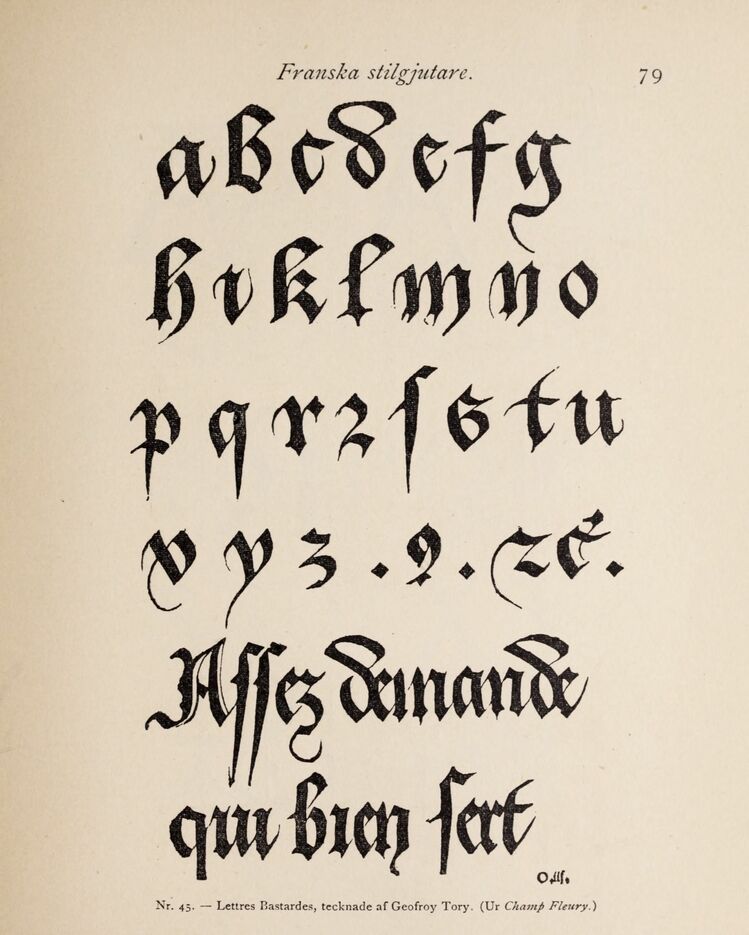 Franska stilgjutare. 79
a b c d e f g
h i k l m n o
p q r ꝛ ſ s t u
v y z . ꝯ . ⁊ c̃ .
Aſſez demande
qui bien ſert
Nr. 45. — Lettres Bastardes, tecknade af Geofroy Tory. (Ur Champ Fleury.)